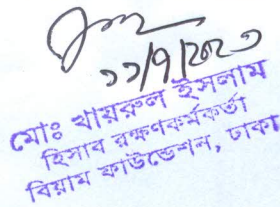 ১১/৭/২০২৩
মোঃ খায়রুল ইসলাম
হিসাব রক্ষণকর্মকর্তা
বিয়াম ফাউন্ডেশন, ঢাকা